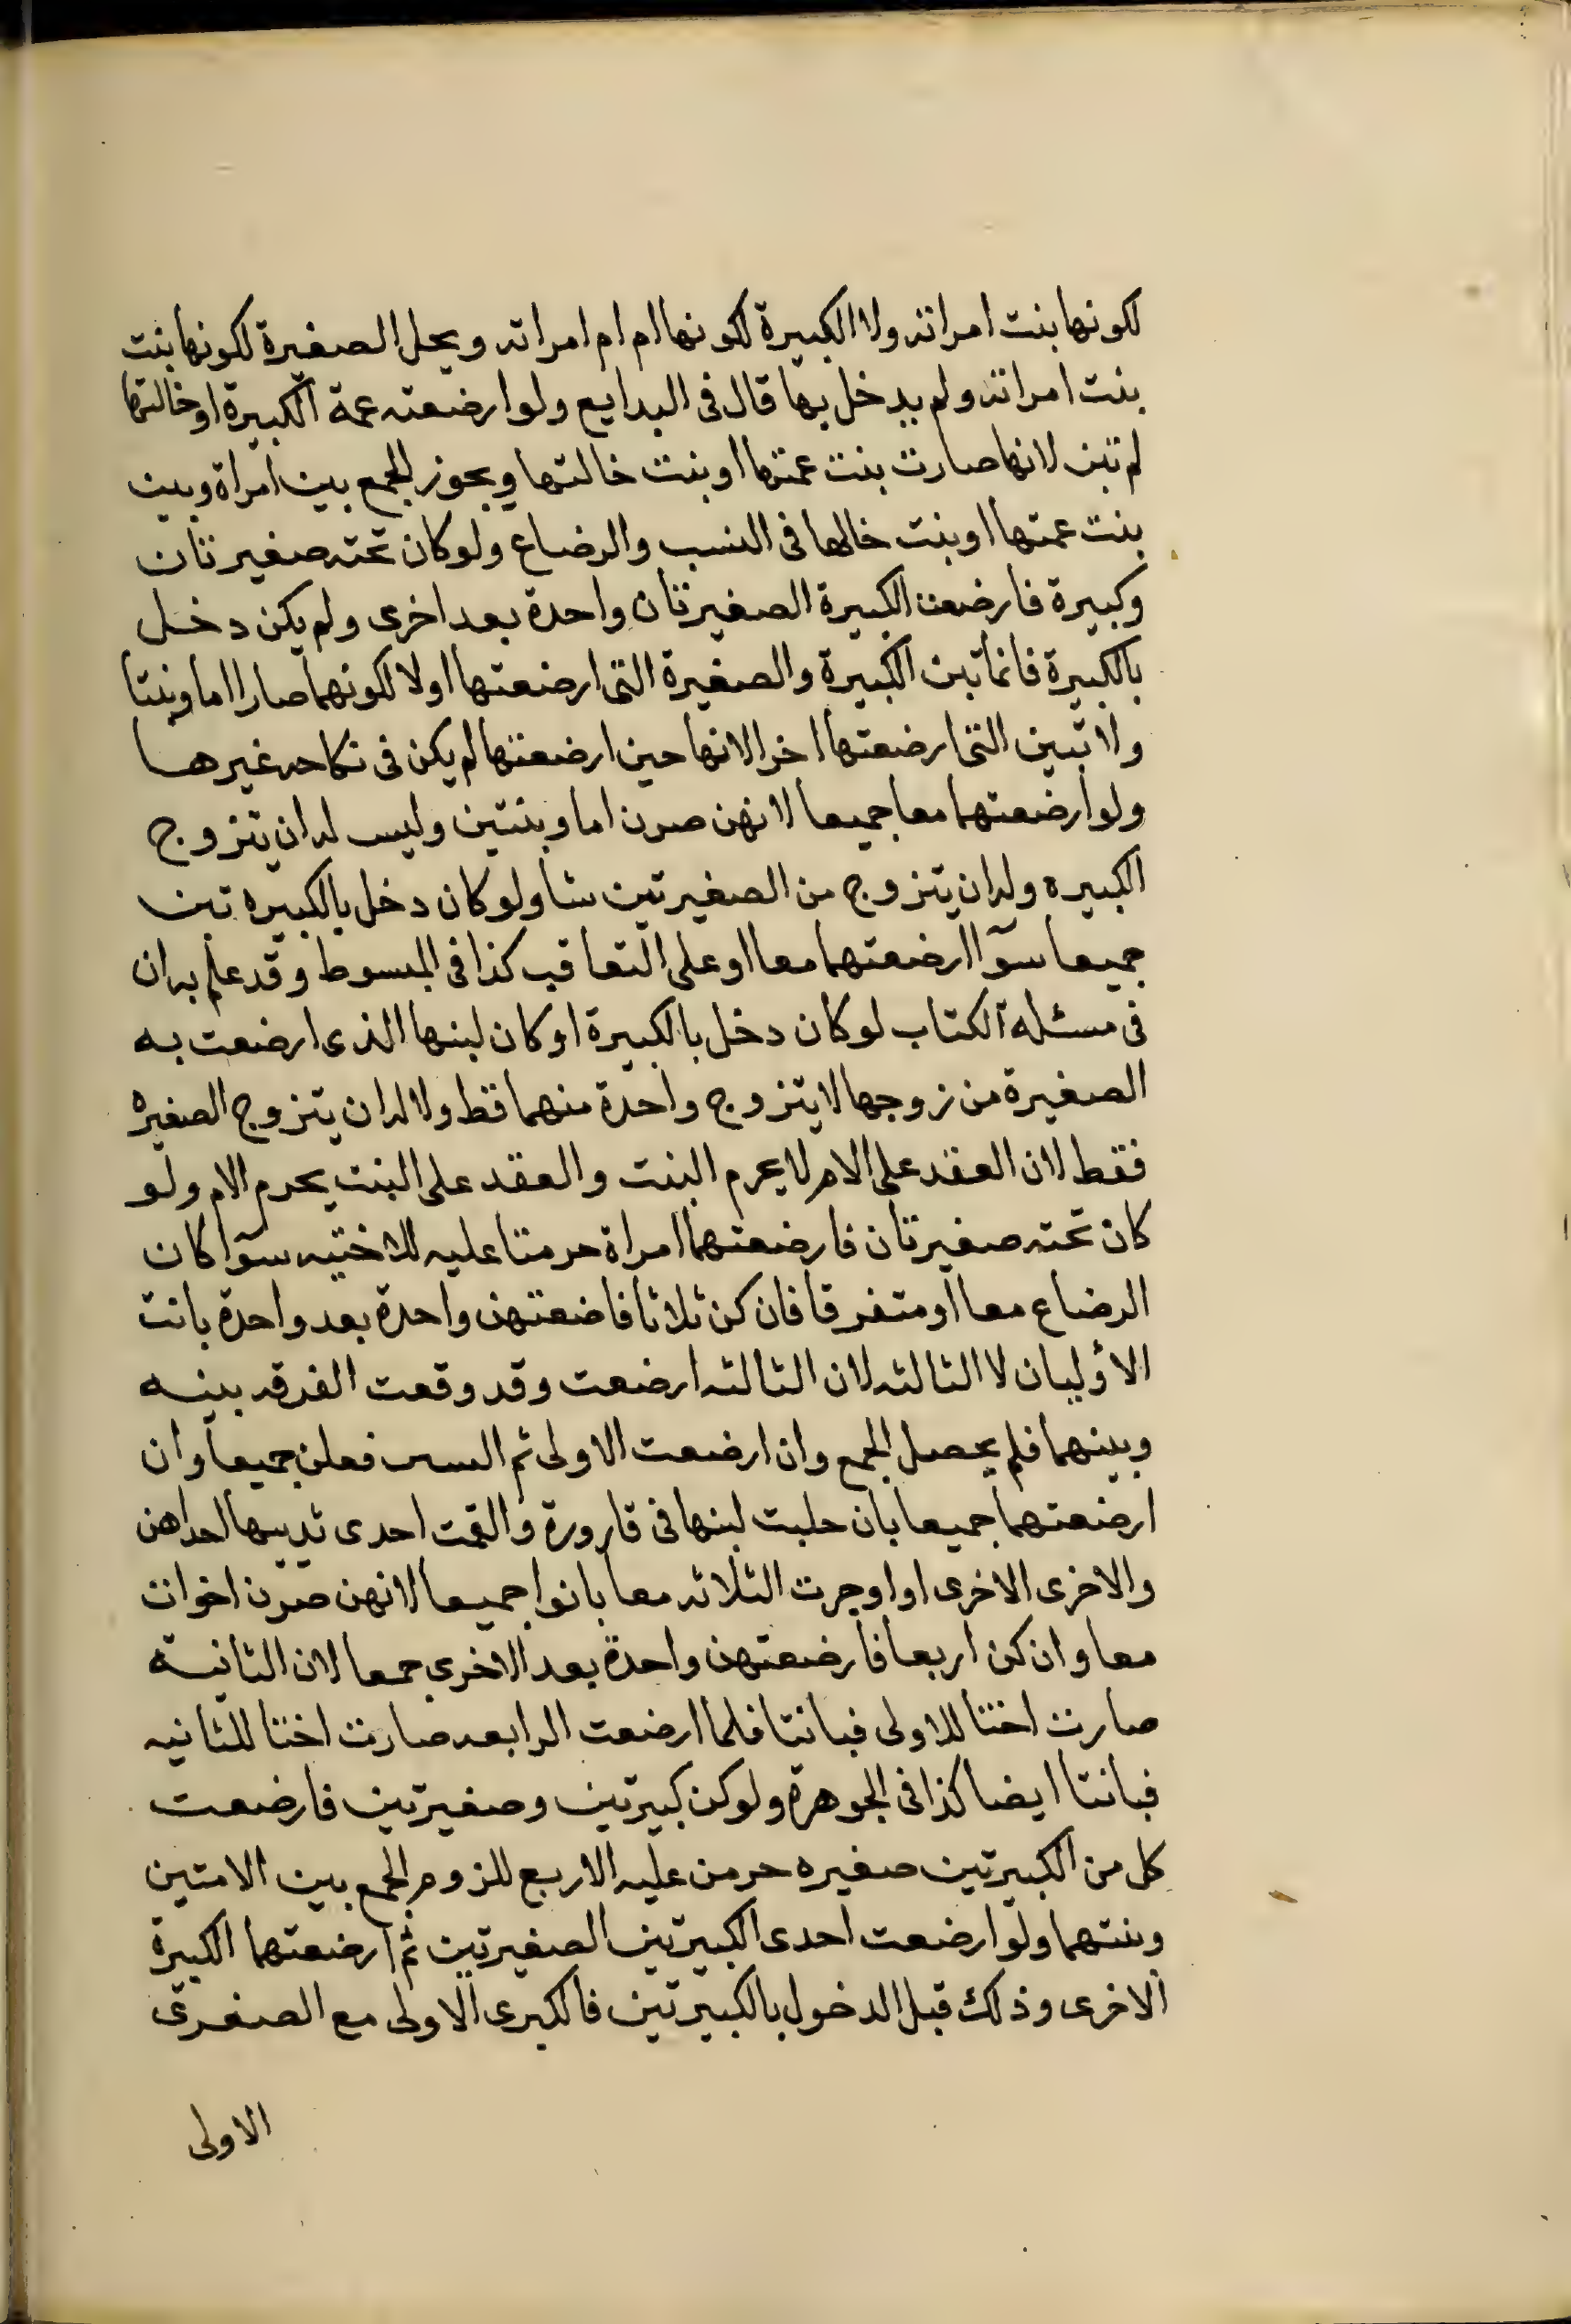 لكونها بنت امراته ولا الكبيرة لكونها ام ام امراته ويحل الصغيرة لكونها بنت
بنت امراته ولم يدخل بها قال فى البدايع ولو ارضعته عمة الكبيرة او خالتها
لم تبن لانها صارت بنت عمتها او بنت خالتها ويجوز الجمع بين امراة وبين
بنت عمتها او بنت خالها فى النسب والرضاع ولو كان تحته صغيرتان
وكبيرة فارضعت الكبيرة الصغيرتان واحدة بعد اخرى ولم يكن دخل
بالكبيرة فانما تبن الكبيرة والصغيرة التى ارضعتها اولا لكونهما صارا اما وبنتا
ولا تبين التى ارضعتها اخرا لانها حين ارضعتها لم يكن فى نكاحه غيرها
ولو ارضعتهما معا جميعا لانهن صرن اما وبنتين وليس له ان يتزوج
الكبيره وله ان يتزوج من الصغيرتين شا ولو كان دخل بالكبيره تبن
جميعا سوآ ارضعتهما معا او على التعاقب كذا فى المبسوط وقد علم به ان
فى مسئلة الكتاب لو كان دخل بالكبيرة او كان لبنها الذى ارضعت به
الصغيرة من زوجها لا يتزوج واحدة منهما قط ولا له ان يتزوج الصغيره
فقط لان العقد على الام لا يحرم البنت والعقد على البنت يحرم الام ولو
كان تحته صغيرتان فارضعتهما امراة حرمتا عليه للاختيه سوآ كان
الرضاع معا او متفرقا فان كن ثلاثا فاضعتهن واحدة بعد واحدة بانت
الأوليان لا الثالثه لان الثالثه ارضعت وقد وقعت الفرقه بينه
وبينهما فلم يحصل الجمع وان ارضعت الاولى ثم فعلن جميعا وان
ارضعتهما جميعا بان حلبت لبنها فى قارورة والقمت احدى ثدييها احداهن
والاخرى الاخرى او اوجرت الثلاثه معا بانوا جميعا لانهن صرن اخوات
معا وان كن اربعا فارضعتهن واحدة بعد الاخرى جمعا لان الثانية
صارت اختا للاولى فبانتا فلما ارضعت الرابعه صارت اختا للثانيه
فبانتا ايضا كذا فى الجوهرة ولو كن كبيرتين وصغيرتين فارضعت
كل من الكبيرتين صغيره حرمن عليه الاربع للزوم الجمع بين الامتين
وبنتهما ولو ارضعت احدى الكبيرتين الصغيرتين ثم ارضعتهما الكبيرة
الاخرى وذلك قبل الدخول بالكبيرتين فالكبرى الاولى مع الصغرى
الاولى